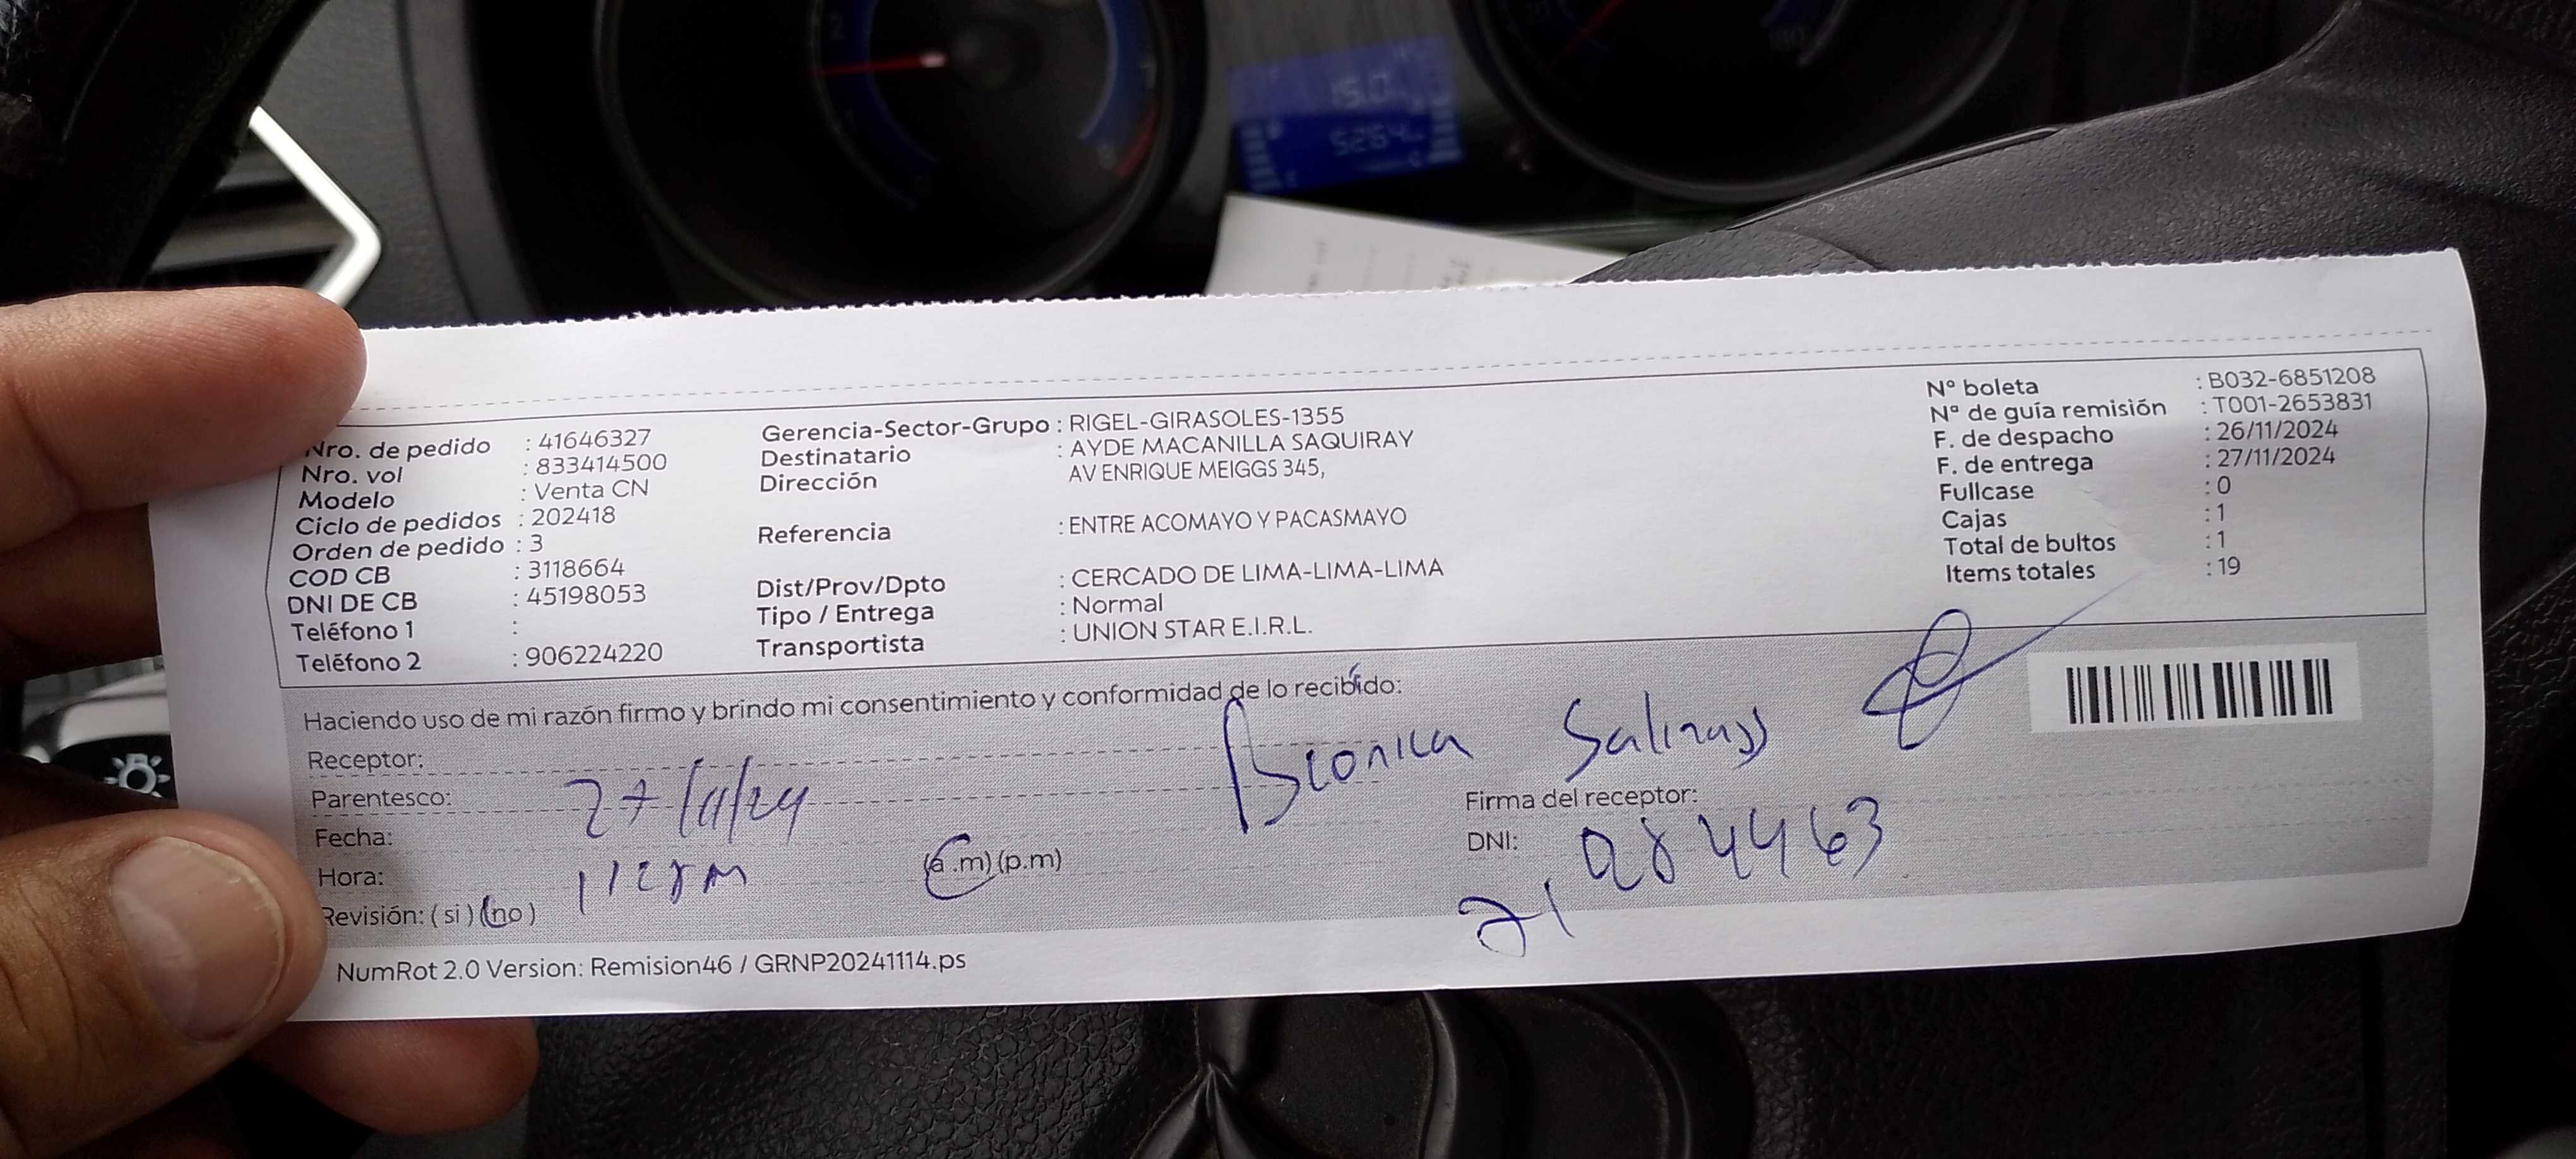 Nro. de pedido : 41646327
Nro. vol : 833414500
Modelo : Venta CN
Ciclo de pedidos : 202418
Orden de pedido : 3
COD CB : 3118664
DNI DE CB : 45198053
Teléfono 1 :
Teléfono 2 : 906224220
Gerencia-Sector-Grupo : RIGEL-GIRASOLES-1355
Destinatario : AYDE MACANILLA SAQUIRAY
Dirección AV ENRIQUE MEIGGS 345,
Referencia : ENTRE ACOMAYO Y PACASMAYO
Dist/Prov/Dpto : CERCADO DE LIMA-LIMA-LIMA
Tipo / Entrega : Normal
Transportista : UNION STAR E.I.R.L.
Nº boleta : B032-6851208
Nª de guía remisión : T001-2653831
F. de despacho : 26/11/2024
F. de entrega : 27/11/2024
Fullcase : 0
Cajas : 1
Total de bultos : 1
Items totales : 19
Haciendo uso de mi razón firmo y brindo mi consentimiento y conformidad de lo recibido:
Receptor:
Parentesco:
Fecha: 27/11/24
Hora: (a.m) (p.m)
Revisión: ( si ) (no )
Salinas
Firma del receptor:
DNI: 21084463
NumRot 2.0 Version: Remision46 / GRNP20241114.ps